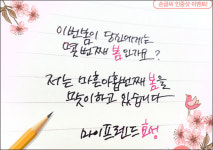 손글씨 인증샷 이벤트!
이번봄이 당신에게는
몇번째 봄인가요?
저는 마흔아홉번째 봄을
맞이하고 있습니다
마이프렌드 효성